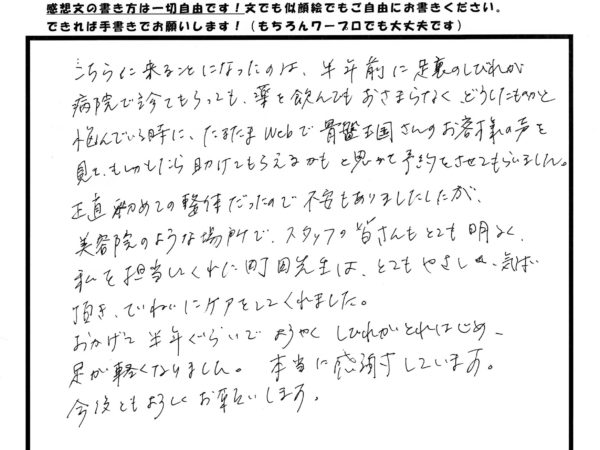 感想文の書き方は一切自由です！文でも似顔絵でもご自由にお書きください。
できれば手書きでお願いします！（もちろんワープロでも大丈夫です）
こちらに来ることになったのは、半年前に足裏のしびれが
病院で診てもらっても、薬を飲んでもおさまらなく、どうしたものかと
悩んでいる時に、たまたまWebで骨盤王国さんのお客様の声を
見て、もしかしたら助けてもらえるかもと思って予約をさせてもらいました。
正直初めての整体だったので不安もありましたしたが、
美容院のような場所で、スタッフの皆さんもとても明るく、
私を担当してくれた町田先生は、とてもやさしく、気ばり
頂き、ていねいにケアをしてくれました。
おかげで半年ぐらいでようやくしびれがとれはじめ、
足が軽くなりました。本当に感謝しています。
今後ともよろしくお願いします。